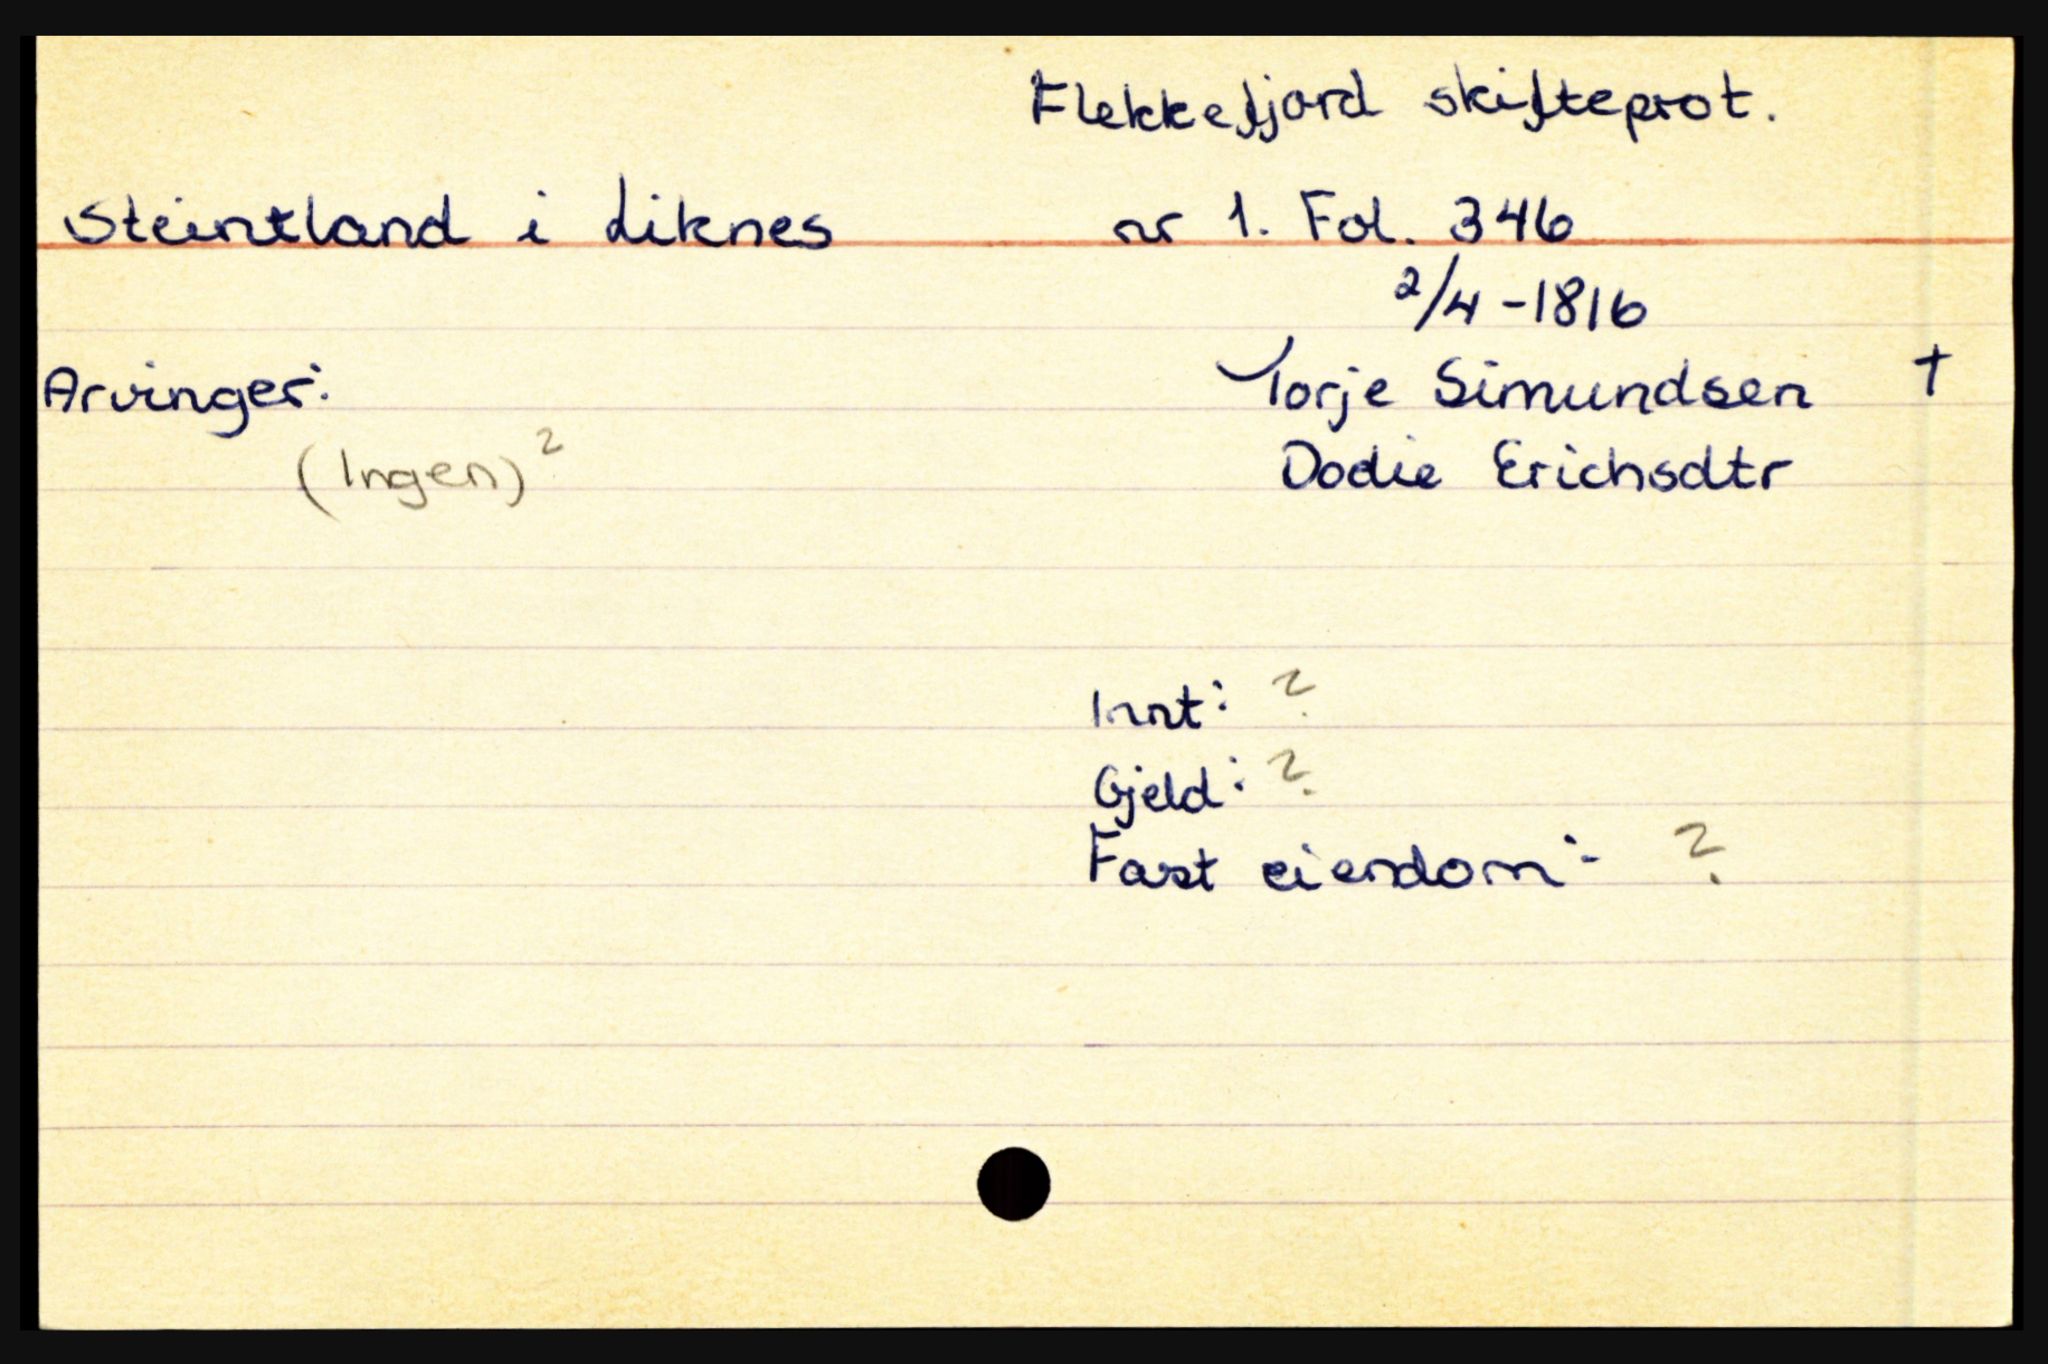 Flekkefjord skifteprot.
Steintland i Liknes nr 1. Fol. 346
2/4 - 1816
Arvinger: Torje Simundsen †
(Ingen)? Dodie Erichsdtr
Innt: ?
Gjeld: ?
Fast eiendom:- ?